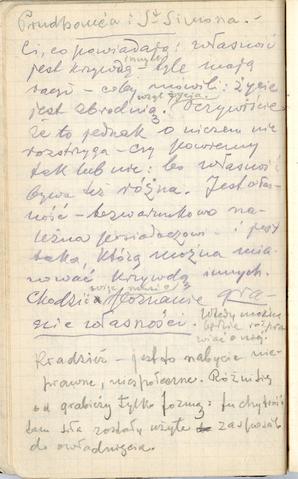 Proudhonów i St Simona. –
Ci, co powiadają: własność
jest krzywdą – tyle mają
racji – coby mówili: życie
jest zbrodnią. Oczywiście
że to jednak o niczem nie
rozstrzyga – czy powiemy
tak lub nie: bo własność
bywa też różna. Jest włas-
ność – bezwarunkowo na-
leżna posiadaczowi – i jest
taka, którą można mia-
nować krzywdą innych.
Chodzi o poznanie gra-
nic własności. Wtedy można
będzie rozpra-
wiać o niej.
Kradzież – jest to nabycie nie-
prawne, niespołeczne. Różni się
od grabieży tylko formą: tu chytrość
tam siła zostały użyte za sposób
do owładnięcia.